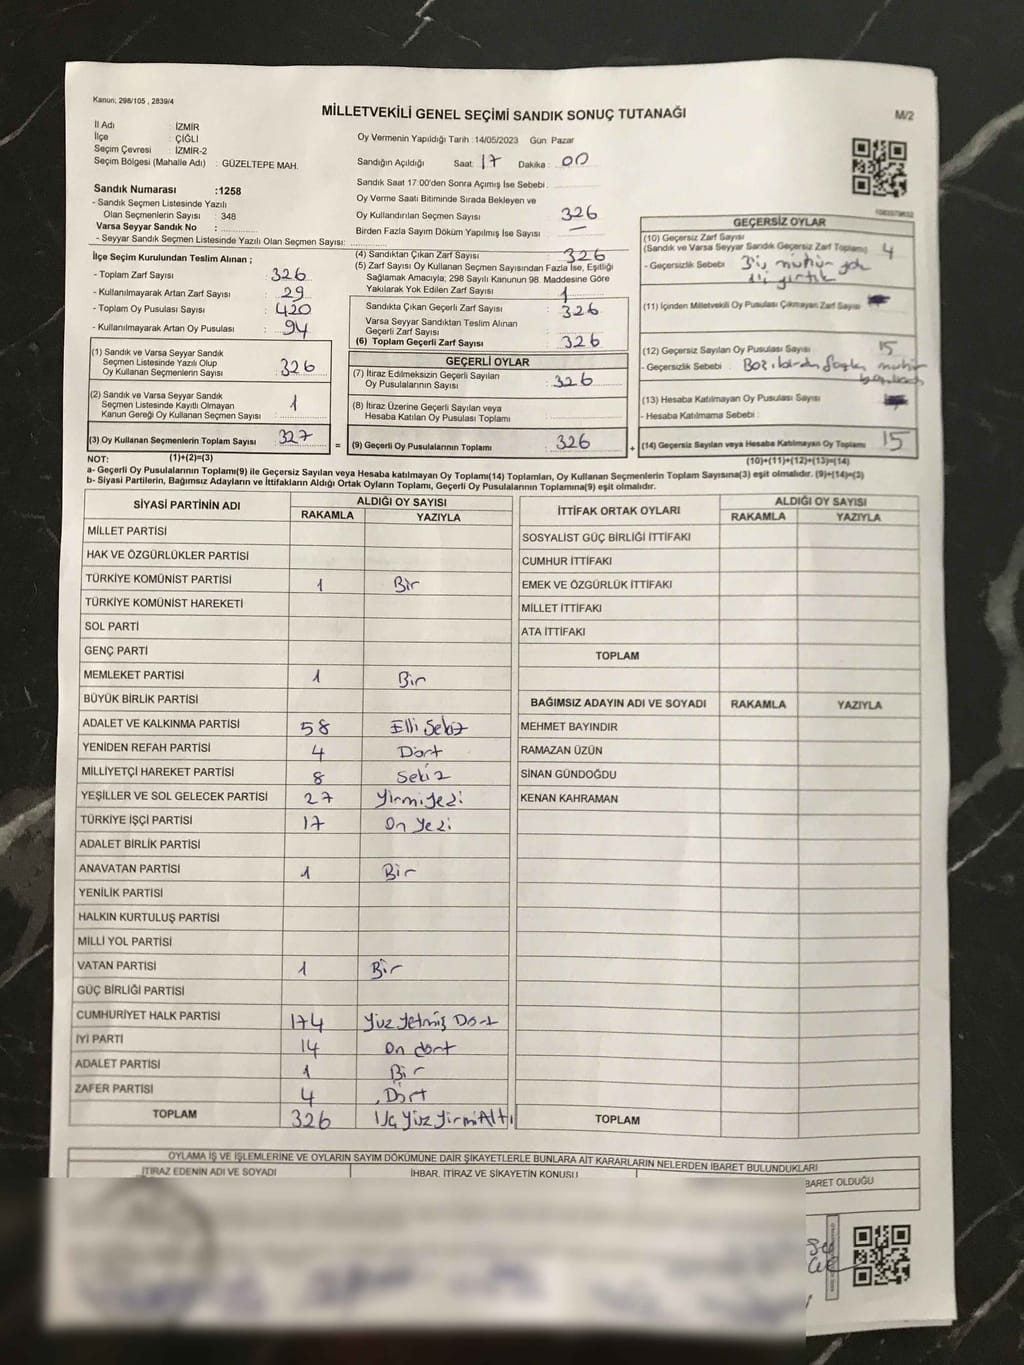 Kanun; 298/105 , 2839/4
MİLLETVEKİLİ GENEL SEÇİMİ SANDIK SONUÇ TUTANAĞI
M/2
İl Adı : İZMİR
İlçe : ÇİĞLİ
Seçim Çevresi : İZMİR-2
Seçim Bölgesi (Mahalle Adı) : GÜZELTEPE MAH.
Oy Vermenin Yapıldığı Tarih : 14/05/2023 Gün: Pazar
Sandığın Açıldığı Saat: 17 Dakika : 00
Sandık Saat 17:00'den Sonra Açımış İse Sebebi :
Oy Verme Saati Bitiminde Sırada Bekleyen ve
Oy Kullandırılan Seçmen Sayısı : 326
Birden Fazla Sayım Döküm Yapılmış İse Sayısı : —
Sandık Numarası :1258
- Sandık Seçmen Listesinde Yazılı
Olan Seçmenlerin Sayısı : 348
Varsa Seyyar Sandık No :
- Seyyar Sandık Seçmen Listesinde Yazılı Olan Seçmen Sayısı:
İlçe Seçim Kurulundan Teslim Alınan ;
- Toplam Zarf Sayısı : 326
- Kullanılmayarak Artan Zarf Sayısı : 29
- Toplam Oy Pusulası Sayısı : 420
- Kullanılmayarak Artan Oy Pusulası : 94
(1) Sandık ve Varsa Seyyar Sandık
Seçmen Listesinde Yazılı Olup
Oy Kullanan Seçmenlerin Sayısı : 326
(2) Sandık ve Varsa Seyyar Sandık
Seçmen Listesinde Kayıtlı Olmayan
Kanun Gereği Oy Kullanan Seçmen Sayısı : 1
(3) Oy Kullanan Seçmenlerin Toplam Sayısı : 327
(4) Sandıktan Çıkan Zarf Sayısı : 326
(5) Zarf Sayısı Oy Kullanan Seçmen Sayısından Fazla İse, Eşitliği
Sağlamak Amacıyla; 298 Sayılı Kanunun 98. Maddesine Göre
Yakılarak Yok Edilen Zarf Sayısı : 1
Sandıkta Çıkan Geçerli Zarf Sayısı : 326
Varsa Seyyar Sandıktan Teslim Alınan
Geçerli Zarf Sayısı :
(6) Toplam Geçerli Zarf Sayısı : 326
GEÇERLİ OYLAR
(7) İtiraz Edilmeksizin Geçerli Sayılan
Oy Pusulalarının Sayısı : 326
(8) İtiraz Üzerine Geçerli Sayılan veya
Hesaba Katılan Oy Pusulası Toplamı :
= (9) Geçerli Oy Pusulalarının Toplamı : 326
GEÇERSİZ OYLAR
(10) Geçersiz Zarf Sayısı
(Sandık ve Varsa Seyyar Sandık Geçersiz Zarf Toplamı) : 4
- Geçersizlik Sebebi : 3'ü mühür yok
1'i yırtık
(11) İçinden Milletvekili Oy Pusulası Çıkmayan Zarf Sayısı :
(12) Geçersiz Sayılan Oy Pusulası Sayısı : 15
- Geçersizlik Sebebi : mühür
(13) Hesaba Katılmayan Oy Pusulası Sayısı :
- Hesaba Katılmama Sebebi :
+ (14) Geçersiz Sayılan veya Hesaba Katılmayan Oy Toplamı : 15
NOT: (1)+(2)=(3) (10)+(11)+(12)+(13)=(14)
a- Geçerli Oy Pusulalarının Toplamı(9) ile Geçersiz Sayılan veya Hesaba katılmayan Oy Toplamı(14) Toplamları, Oy Kullanan Seçmenlerin Toplam Sayısına(3) eşit olmalıdır. (9)+(14)=(3)
b- Siyasi Partilerin, Bağımsız Adayların ve İttifakların Aldığı Ortak Oyların Toplamı, Geçerli Oy Pusulalarının Toplamına(9) eşit olmalıdır.
SİYASİ PARTİNİN ADI ALDIĞI OY SAYISI
RAKAMLA YAZIYLA
MİLLET PARTİSİ
HAK VE ÖZGÜRLÜKLER PARTİSİ
TÜRKİYE KOMÜNİST PARTİSİ 1 Bir
TÜRKİYE KOMÜNİST HAREKETİ
SOL PARTİ
GENÇ PARTİ
MEMLEKET PARTİSİ 1 Bir
BÜYÜK BİRLİK PARTİSİ
ADALET VE KALKINMA PARTİSİ 58 Elli Sekiz
YENİDEN REFAH PARTİSİ 4 Dört
MİLLİYETÇİ HAREKET PARTİSİ 8 Sekiz
YEŞİLLER VE SOL GELECEK PARTİSİ 27 Yirmi Yedi
TÜRKİYE İŞÇİ PARTİSİ 17 On Yedi
ADALET BİRLİK PARTİSİ
ANAVATAN PARTİSİ 1 Bir
YENİLİK PARTİSİ
HALKIN KURTULUŞ PARTİSİ
MİLLİ YOL PARTİSİ
VATAN PARTİSİ 1 Bir
GÜÇ BİRLİĞİ PARTİSİ
CUMHURİYET HALK PARTİSİ 174 Yüz Yetmiş Dört
İYİ PARTİ 14 On dört
ADALET PARTİSİ 1 Bir
ZAFER PARTİSİ 4 Dört
TOPLAM 326 Üç Yüz Yirmi Altı
İTTİFAK ORTAK OYLARI ALDIĞI OY SAYISI
RAKAMLA YAZIYLA
SOSYALİST GÜÇ BİRLİĞİ İTTİFAKI
CUMHUR İTTİFAKI
EMEK VE ÖZGÜRLÜK İTTİFAKI
MİLLET İTTİFAKI
ATA İTTİFAKI
TOPLAM
BAĞIMSIZ ADAYIN ADI VE SOYADI RAKAMLA YAZIYLA
MEHMET BAYINDIR
RAMAZAN ÜZÜN
SİNAN GÜNDOĞDU
KENAN KAHRAMAN
TOPLAM
OYLAMA İŞ VE İŞLEMLERİNE VE OYLARIN SAYIM DÖKÜMÜNE DAİR ŞİKAYETLERLE BUNLARA AİT KARARLARIN NELERDEN İBARET BULUNDUKLARI
İTİRAZ EDENİN ADI VE SOYADI İHBAR, İTİRAZ VE ŞİKAYETİN KONUSU
BARET OLDUĞU